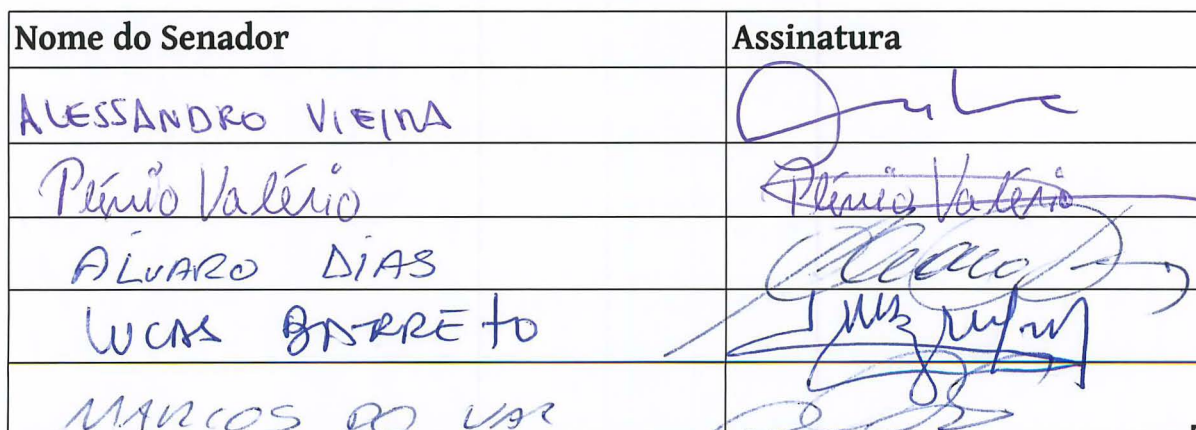 Nome do Senador Assinatura
ALESSANDRO VIEIRA
Plínio Valério Plínio Valério
ALVARO DIAS
LUCAS BARRETO
MARCOS DO VAL